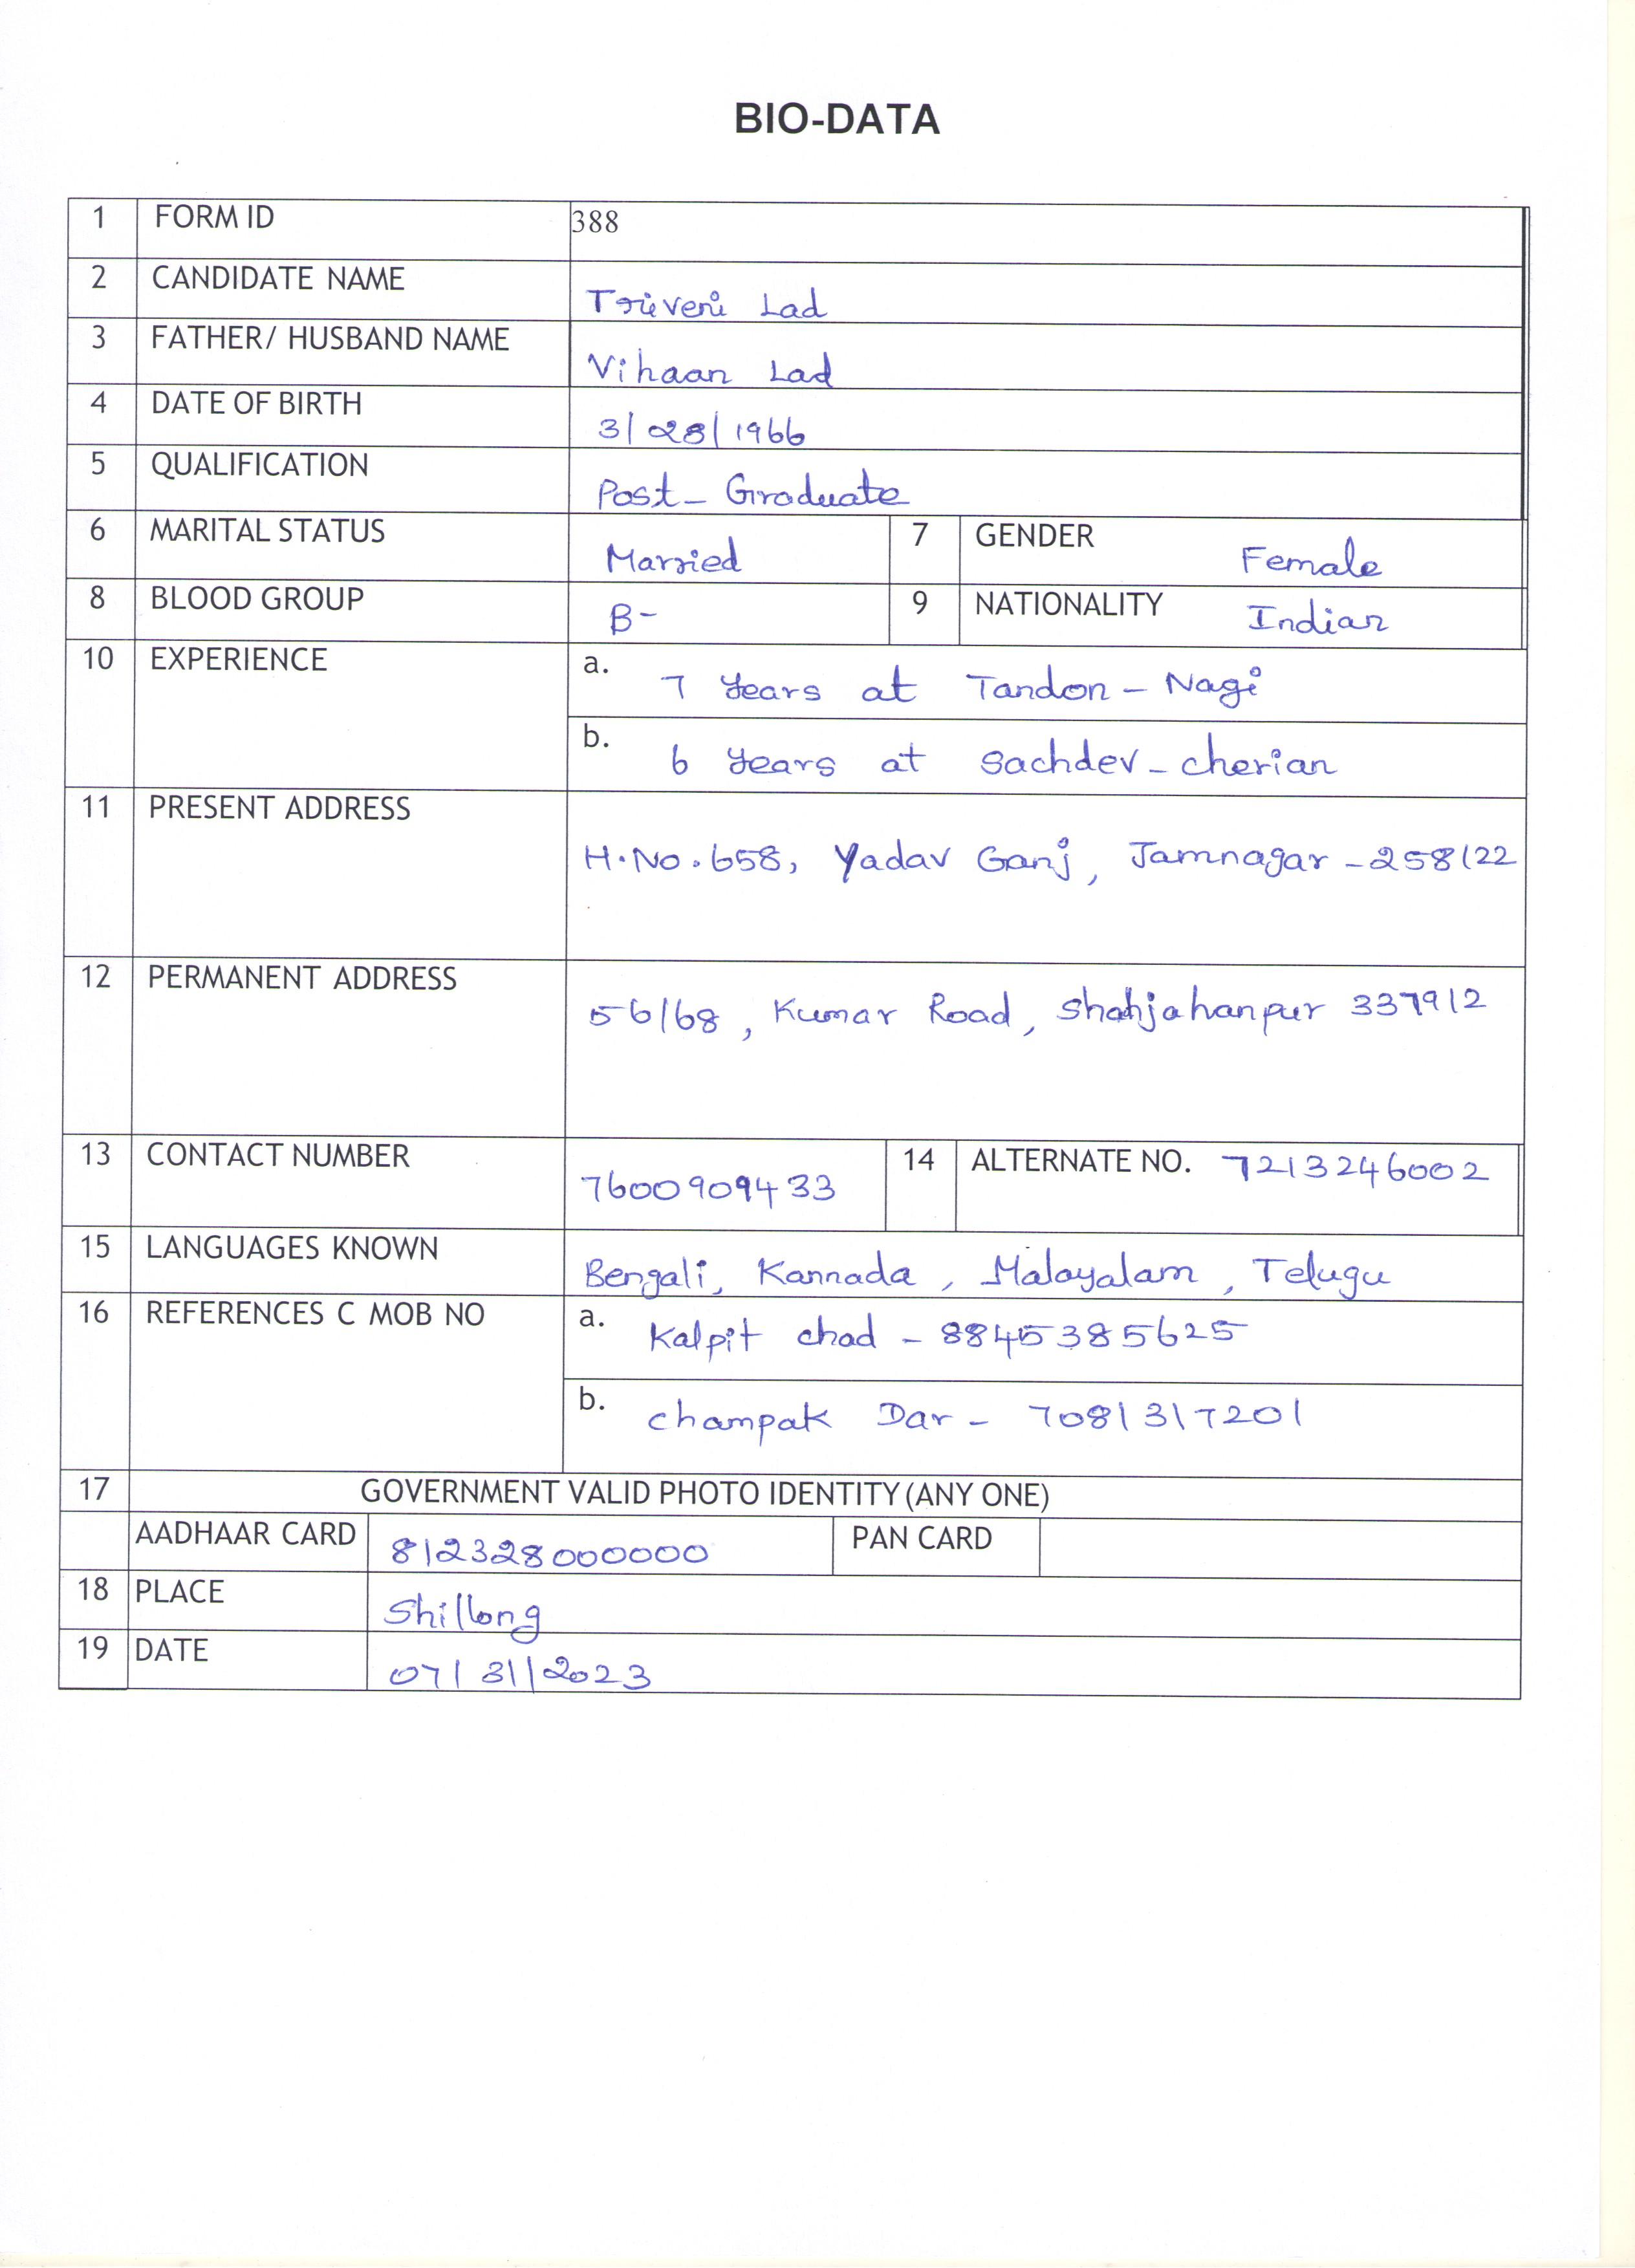 BIO-DATA
1 FORM ID 388
2 CANDIDATE NAME Triveni Lad
3 FATHER/ HUSBAND NAME Vihaan Lad
4 DATE OF BIRTH 3/28/1966
5 QUALIFICATION Post-Graduate
6 MARITAL STATUS Married 7 GENDER Female
8 BLOOD GROUP B- 9 NATIONALITY Indian
10 EXPERIENCE a. 7 Years at Tandon-Nagi
b. 6 Years at Sachdev-cherian
11 PRESENT ADDRESS H.No.658, Yadav Ganj, Jamnagar-258122
12 PERMANENT ADDRESS 56/68, Kumar Road, Shahjahanpur 337912
13 CONTACT NUMBER 7600909433 14 ALTERNATE NO. 7213246002
15 LANGUAGES KNOWN Bengali, Kannada, Malayalam, Telugu
16 REFERENCES C MOB NO a. Kalpit chad - 8845385625
b. champak Dar - 7081317201
17 GOVERNMENT VALID PHOTO IDENTITY (ANY ONE)
AADHAAR CARD 812328000000 PAN CARD
18 PLACE Shillong
19 DATE 07/31/2023